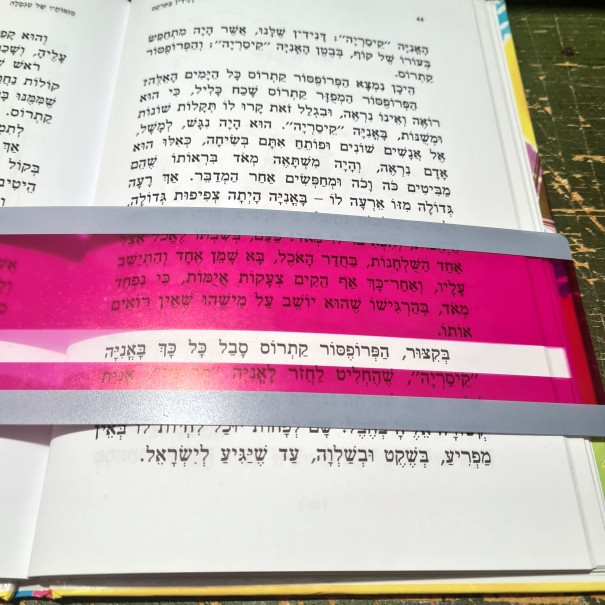 44
דַּנִידִין בִּמְרַקֵּט
הָאֳנִיָּה ״קֵיסַרְיָה״: דַּנִידִין שֶׁלָּנוּ, אֲשֶׁר הָיָה מִתְחַפֵּשׂ
בְּעוֹרוֹ שֶׁל קוֹף, בְּבֶטֶן הָאֳנִיָּה ״קֵיסַרְיָה״, וְהַפְּרוֹפֶסוֹר
קַתְרוֹס.
הֵיכָן נִמְצָא הַפְּרוֹפֶסוֹר קַתְרוֹס כָּל הַיָּמִים הָאֵלֶּה?
הַפְּרוֹפֶסוֹר הַמְפֻזָּר קַתְרוֹס שָׁכַח כָּלִיל, כִּי הוּא
רוֹאֶה וְאֵינוֹ נִרְאֶה, וּבִגְלַל זֹאת קָרוּ לוֹ תַּקָּלוֹת שׁוֹנוֹת
וּמְשֻׁנּוֹת, בָּאֳנִיָּה ״קֵיסַרְיָה״. הוּא הָיָה נִגָּשׁ, לְמָשָׁל,
אֶל אֲנָשִׁים שׁוֹנִים וּפוֹתֵחַ אִתָּם בְּשִׂיחָה, כְּאִלּוּ הוּא
אָדָם נִרְאֶה, וְהָיָה מִשְׁתָּאֶה מְאֹד בִּרְאוֹתוֹ שֶׁהֵם
מַבִּיטִים כֹּה וָכֹה וּמְחַפְּשִׂים אַחַר הַמְדַבֵּר. אַךְ רָעָה
גְּדוֹלָה מִזּוֹ אֵרְעָה לוֹ – בָּאֳנִיָּה הָיְתָה צְפִיפוּת גְּדוֹלָה,
לוֹ בְּשִׁבְתּוֹ לֶאֱכֹל אֵצֶל
אַחַד הַשֻּׁלְחָנוֹת, בַּחֲדַר הָאֹכֶל, בָּא שָׁמֵן אֶחָד וְהִתְיַשֵּׁב
עָלָיו, וְאַחַר־כָּךְ אַף הֵקִים צְעָקוֹת אֲיֻמּוֹת, כִּי נִפְחַד
מְאֹד, בְּהַרְגִּישׁוֹ שֶׁהוּא יוֹשֵׁב עַל מִישֶׁהוּ שֶׁאֵין רוֹאִים
אוֹתוֹ.
בְּקִצּוּר, הַפְּרוֹפֶסוֹר קַתְרוֹס סָבַל כָּל כָּךְ בָּאֳנִיָּה
״קֵיסַרְיָה״, שֶׁהֶחְלִיט לַחֲזֹר לָאֳנִיָּה
שָׁם לְפָחוֹת יוּכַל לִחְיוֹת לוֹ בְּאֵין
מַפְרִיעַ, בְּשֶׁקֶט וּבְשַׁלְוָה, עַד שֶׁיַּגִּיעַ לְיִשְׂרָאֵל.